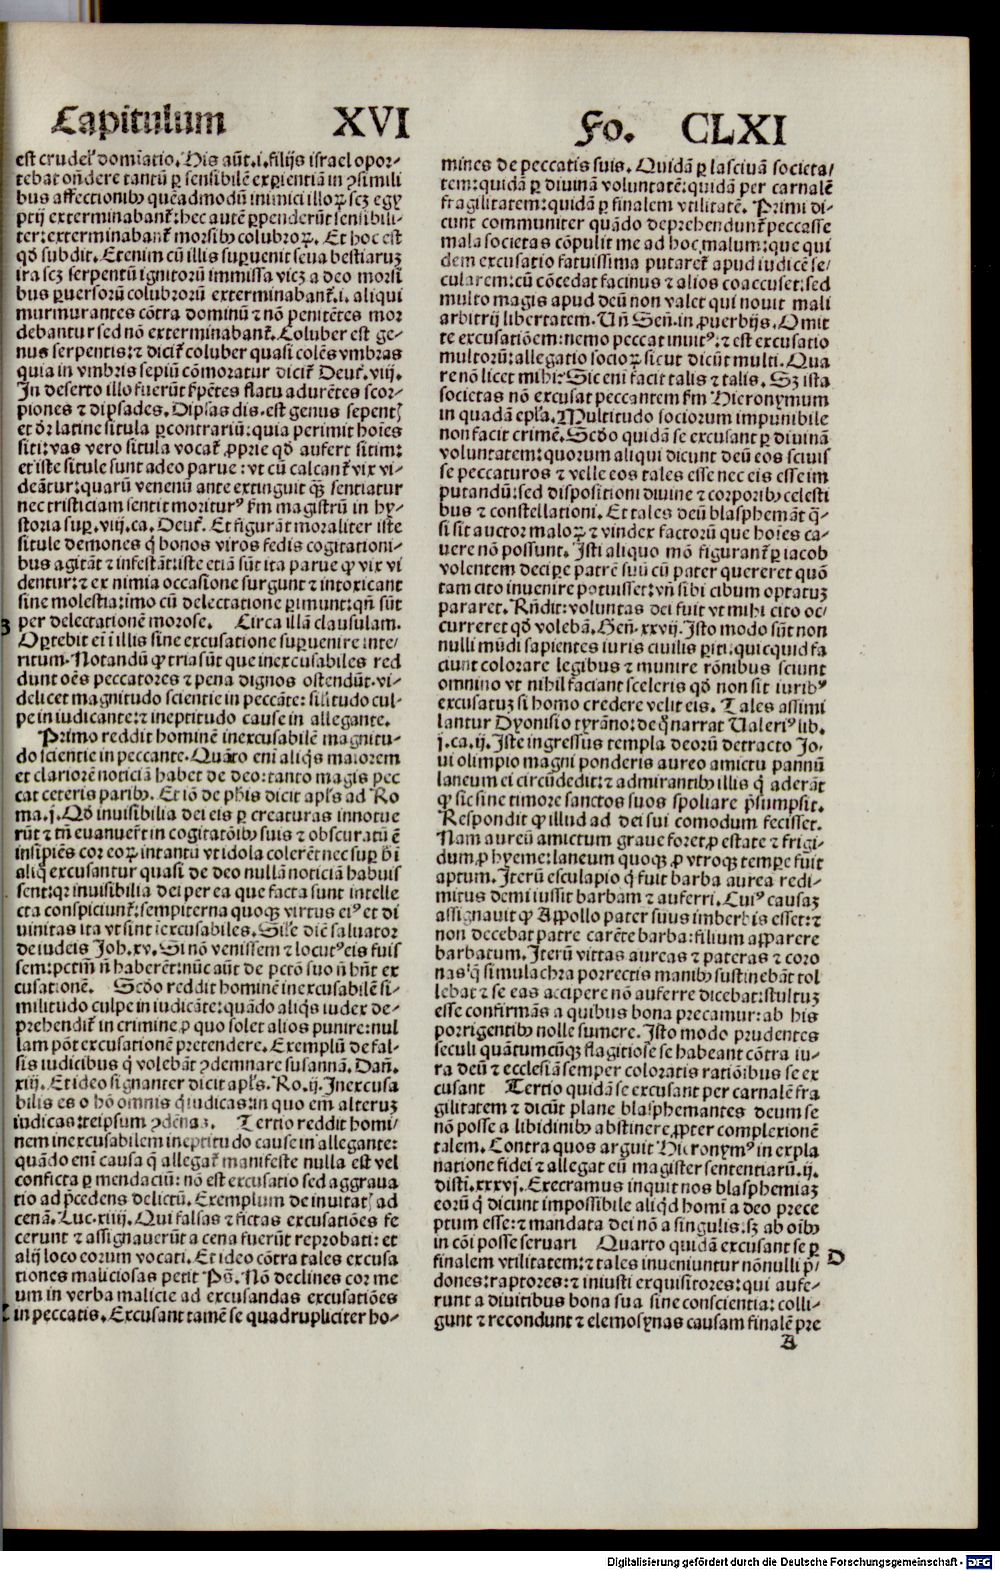 Capitulum XVI Fo. CLXI
est crudel' domīatio. His aūt .i. filijs israel opor-
tebat ondere tantū ꝑ sensibilē experientiā in ꝯsimili
bus affectionibꝰ quēadmodū inimici illoꝝ scꝫ egy
ptij exterminabant᷑: hec autē ꝑpenderūt sensibili-
ter: exterminabant᷑ morsibꝰ colubroꝝ. Et hoc est
qd̄ subdit. Etenim cū illis suꝑuenit seua bestiaruꝫ
ira scꝫ serpentū ignitorū immissa vicꝫ a deo morsi
bus ꝑuersorū colubrorū exterminabant᷑ .i. aliqui
murmurantes cōtra dominū ⁊ nō penitētes mor
debantur sed nō exterminabant᷑. Coluber est ge-
nus serpentis: ⁊ dicit᷑ coluber quasi colēs vmbras
quia in vmbris sepiū cōmoratur dicit᷑ Deut᷑. viij.
In deserto illo fuerūt s̄pētes flatu adurētes scor-
piones ⁊ dipsades. Dipsas dis. est genus sepent᷑
et d̄r latine situla ꝑ contrariū: quia perimit hoīes
siti: vas vero situla vocat᷑ ꝓprie qd̄ aufert sitim:
et iste situle sunt adeo parue: vt cū calcant᷑ vix vi-
deātur: quarū venenū ante extinguit qꝫ sentiatur
nec tristiciam sentit moriturꝰ s̄m magistrū in hy-
storia suꝑ .viij. ca. Deut᷑. Et figurāt moraliter iste
situle demones q̄ bonos viros fedis cogitationi-
bus agitāt ⁊ infestāt: iste etiā sūt ita parue ꝙ vix vi
dentur: ⁊ ex nimia occasione surgunt ⁊ intoxicant
sine molestia: imo cū delectatione ꝑimunt: qn̄ sūt
per delectationē morose. Circa illā clausulam.
Oꝑtebit ei īi illis sine excusatione suꝑuenire inte-
ritum. Notandū ꝙ tria sūt que inexcusabiles red
dunt oēs peccatores ⁊ pena dignos ostendūt. vi-
delicet magnitudo scientie in peccāte: sīlitudo cul-
pe in iudicante: ⁊ ineptitudo cause in allegante.
Primo reddit hominē inexcusabilē magnitu-
do scientie in peccante. Quāto enī aliqs maiorem
et clariorē noticiā habet de deo: tanto magis pec
cat ceteris paribꝰ. Et iō de phīs dicit apl's ad Ro
ma. j. Qd̄ inuisibilia dei eis ꝑ creaturas innotue
rūt ⁊ tn̄ euanuert̄ in cogitatōibꝰ suis ⁊ obscuratū ē
insipiēs cor eoꝝ intantū vt idola colerēt nec suꝑ h̄i
aliq̄ excusantur quasi de deo nullā noticiā habuis
sent: qꝛ inuisibilia dei per ea que facta sunt intelle
cta conspiciunt᷑: sempiterna quoqꝫ virtus eiꝰ et di
uinitas ita vt sint īexcusabiles. Sīle diē saluator
de iudeis Joh. xv. Si nō venissem ⁊ locutꝰ eis fuis
sem: pctm̄ n̄ haberēt: nūc aūt de pctō suo n̄ hn̄t ex
cusationē. Scdo reddit hominē inexcusabilē si-
militudo culpe in iudicāte: quādo aliqs iudex de-
prehendit᷑ in crimine ꝓ quo solet alios punire: nul
lam pōt excusationē pretendere. Exemplū de fal-
sis iudicibus q̄ volebāt ꝯdemnare susannā. Dan̄.
xiij. Et ideo signanter dicit apl's. Ro. ij. Inexcusa
bilis es o hō omnis q̄ iudicas: in quo em̄ alteruꝫ
iudicas: teipsum ꝯdēnas. Tertio reddit homi-
nem inexcusabilem ineptitudo cause in allegante:
quādo enī causa q̄ allegat᷑ manifeste nulla est vel
conficta ꝑ mendaciū: nō est excusatio sed aggraua
tio ad p̄cedens delictū. Exemplum de inuitat᷑ ad
cenā. Luc. xiiij. Qui falsas ⁊ fictas excusatiōes fe
cerunt ⁊ assignauerūt a cena fuerūt reprobati: et
alij loco eorum vocati. Et ideo cōtra tales excusa
tiones maliciosas petit Ps̄. Nō declines cor me
um in verba malicie ad excusandas excusatiōes
in peccatis. Excusant tamē se quadrupliciter ho-
mines de peccatis suis. Quidā ꝑ lasciuā societa-
tem: quidā ꝑ diuinā voluntatē: quidā per carnalē
fragilitatem: quidā ꝑ finalem vtilitatē. Primi di-
cunt communiter quādo deprehendunt᷑ peccasse
mala societas cōpulit me ad hoc malum: que qui
dem excusatio fatuissima putaret᷑ apud iudicē se-
cularem: cū cōcedat facinus ⁊ alios coaccuset: sed
multo magis apud deū non valet qui nouit mali
arbitrij libertatem. Un̄ Sen̄. in ꝓuerbijs. Omit
te excusatiōem: nemo peccat inuitꝰ: ⁊ est excusatio
multorū: allegatio socioꝝ sicut dicūt multi. Qua
re nō licet mihi? Sic enī facit talis ⁊ talis. Sꝫ ista
societas nō excusat peccantem s̄m Hieronymum
in quadā epl'a. Multitudo sociorum impunibile
non facit crimē. Scdo quidā se excusant ꝑ diuinā
voluntatem: quorum aliqui dicunt deū eos sciuis
se peccaturos ⁊ velle eos tales esse nec eis esse im
putandū: sed dispositioni diuine ⁊ corporibꝰ celesti
bus ⁊ constellationi. Et tales deū blasphemāt q̄-
si sit auctor maloꝝ ⁊ vindex factorū que hoīes ca-
uere nō possunt. Isti aliquo mō figurant᷑ ꝑ iacob
volentem decipe patrē suū cū pater quereret quō
tam cito inuenire potuisset: vn̄ sibi cibum optatuꝫ
pararet. Rn̄dit: voluntas dei fuit vt mihi cito oc-
curreret qd̄ volebā. Gen̄. xxvij. Isto modo sūt non
nulli mūdi sapientes iuris ciuilis ꝑiti: quicquid fa
ciunt colorare legibus ⁊ munire rōnibus sciunt
omnino vt nihil faciant sceleris qd̄ non sit iuribꝰ
excusatuꝫ si homo credere velit eis. Tales assimi
lantur Dyonisio tyrāno: de q̄ narrat Ualeriꝰ lib.
j. ca. ij. Iste ingressus templa deorū detracto Jo-
ui olimpio magni ponderis aureo amictu pannū
laneum ei circūdedit: ⁊ admirantibꝰ illis q̄ aderāt
ꝙ sic sine timore sanctos suos spoliare p̄sumpsit.
Respondit ꝙ illud ad dei sui comodum fecisset.
Nam aureū amictum graue foret ꝓ estate ⁊ frigi-
dum ꝓ hyeme: laneum quoqꝫ ꝓ vtroqꝫ temꝑe fuit
aptum. Iterū esculapio q̄ fuit barba aurea redi-
mitus demi iussit barbam ⁊ auferri. Cuiꝰ causaꝫ
assignauit ꝙ Appollo pater suus imberbis esset: ⁊
non decebat patre carēte barba: filium apparere
barbatum. Iterū vittas aureas ⁊ pateras ⁊ coro
nas q̄ simulachra porrectis manibꝰ sustinebāt tol
lebat ⁊ se eas accipere nō auferre dicebat: stultuꝫ
esse confirmās a quibus bona precamur: ab his
porrigentibꝰ nolle sumere. Isto modo prudentes
seculi quātumcūqꝫ flagitiose se habeant cōtra iu-
ra deū ⁊ ecclesiā semper coloratis ratiōibus se ex
cusant Tertio quidā se excusant per carnalē fra
gilitatem ⁊ dicūt plane blasphemantes deum se
nō posse a libidinibꝰ abstinere ꝓpter complexionē
talem. Contra quos arguit Hieronymꝰ in expla
natione fidei ⁊ allegat eū magister sententiarū. ij.
disti. xxxvj. Execramus inquit nos blasphemiaꝫ
eorū q̄ dicunt impossibile aliqd homī a deo prece
ptum esse: ⁊ mandata dei nō a singulis: sꝫ ab oībꝰ
in cōi posse seruari Quarto quidā excusant se ꝑ
finalem vtilitatem: ⁊ tales inueniuntur nōnulli p̄-
dones: raptores: ⁊ iniusti exquisitores: qui aufe-
runt a diuitibus bona sua sine conscientia: colli-
gunt ⁊ recondunt ⁊ elemosynas causam finalē pre
D
A
Digitalisierung gefördert durch die Deutsche Forschungsgemeinschaft - DFG